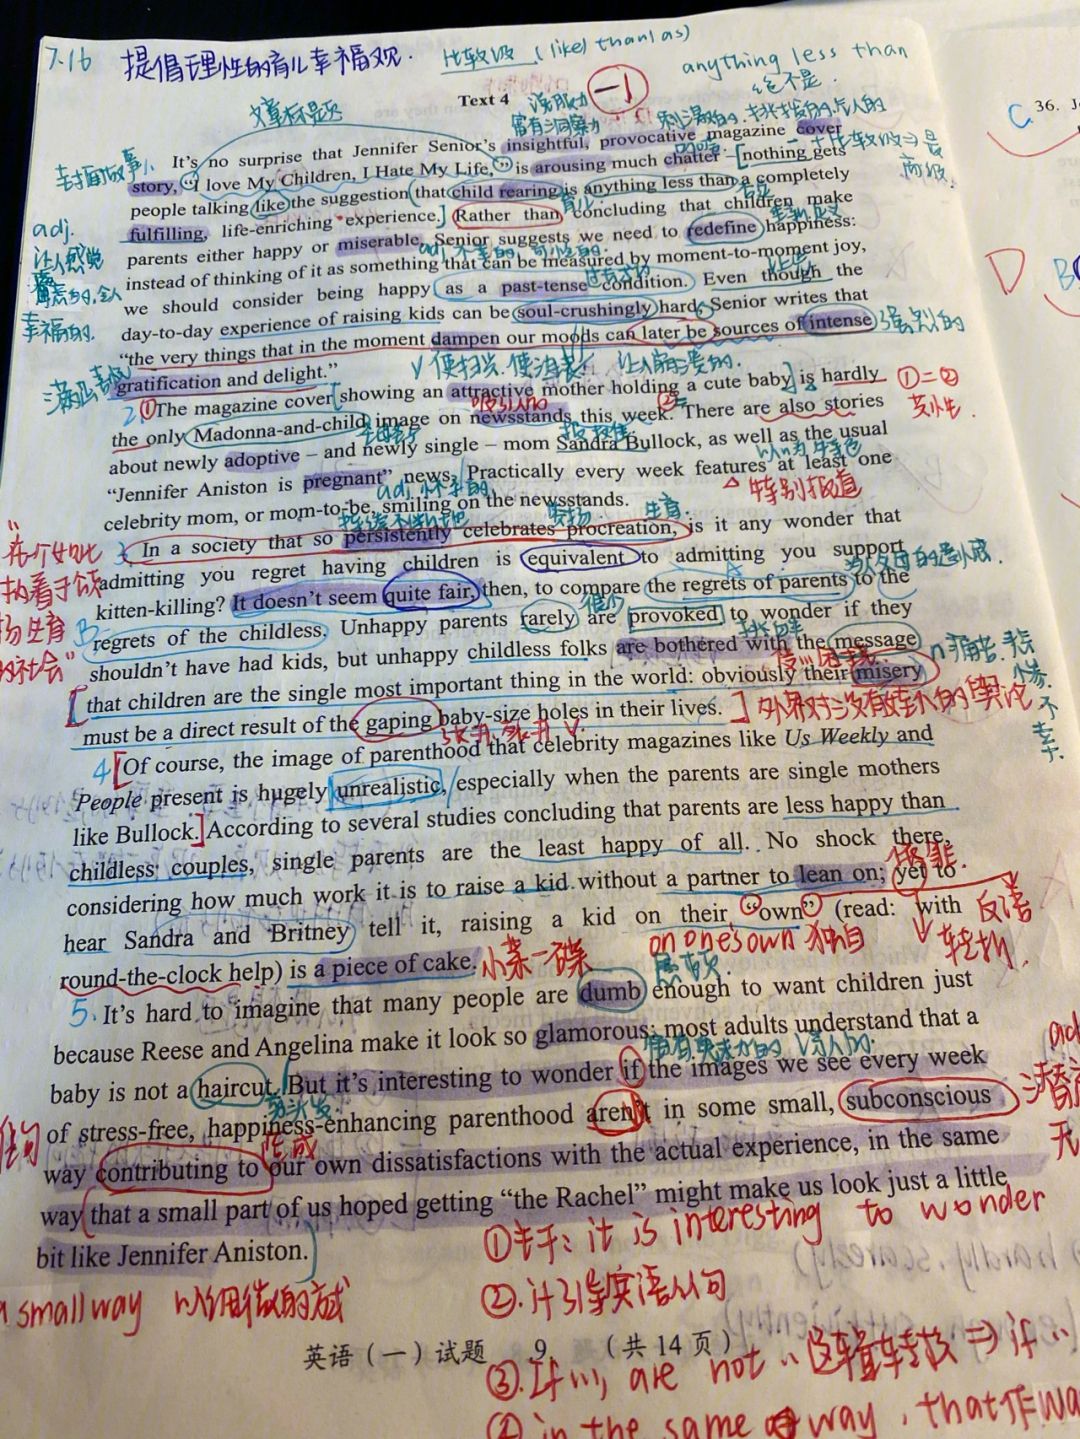 7.16 提倡理性的育儿幸福观. 比较级 (like/than/as)
anything less than
绝不是.
Text 4
文章标题
说服力
富有洞察力
It's no surprise that Jennifer Senior's insightful, provocative magazine cover
封面故事
story, "I love My Children, I Hate My Life," is arousing much chatter – nothing gets
people talking like the suggestion that child rearing is anything less than a completely
fulfilling, life-enriching experience. Rather than concluding that children make
adj.
parents either happy or miserable, Senior suggests we need to redefine happiness:
instead of thinking of it as something that can be measured by moment-to-moment joy,
we should consider being happy as a past-tense condition. Even though the
幸福的.
day-to-day experience of raising kids can be soul-crushingly hard, Senior writes that
"the very things that in the moment dampen our moods can later be sources of intense 强烈的
gratification and delight."
2 ① The magazine cover showing an attractive mother holding a cute baby is hardly ①=②
the only Madonna-and-child image on newsstands this week. There are also stories
吸引人的
about newly adoptive – and newly single – mom Sandra Bullock, as well as the usual
"Jennifer Aniston is pregnant" news. Practically every week features at least one
特别报道
adj. 怀孕的
celebrity mom, or mom-to-be, smiling on the newsstands.
持续不断地 赞扬 生育.
3 In a society that so persistently celebrates procreation, is it any wonder that
admitting you regret having children is equivalent to admitting you support
kitten-killing? It doesn't seem quite fair, then, to compare the regrets of parents to the
regrets of the childless. Unhappy parents rarely are provoked to wonder if they
很少
"在个如此
执着于颂
扬生育
的社会"
shouldn't have had kids, but unhappy childless folks are bothered with the message
that children are the single most important thing in the world: obviously their misery
n 痛苦. 悲惨. 不幸.
must be a direct result of the gaping baby-size holes in their lives. 外界对没有娃的人的舆论
4 Of course, the image of parenthood that celebrity magazines like Us Weekly and
People present is hugely unrealistic, especially when the parents are single mothers
like Bullock. According to several studies concluding that parents are less happy than
childless couples, single parents are the least happy of all. No shock there,
considering how much work it is to raise a kid without a partner to lean on; yet to
hear Sandra and Britney tell it, raising a kid on their "own" (read: with
反语
round-the-clock help) is a piece of cake. 小菜一碟 on one's own 独自
5. It's hard to imagine that many people are dumb enough to want children just
because Reese and Angelina make it look so glamorous: most adults understand that a
baby is not a haircut. But it's interesting to wonder if the images we see every week
剪头发.
of stress-free, happiness-enhancing parenthood aren't in some small, subconscious
造成
way contributing to our own dissatisfactions with the actual experience, in the same
way that a small part of us hoped getting "the Rachel" might make us look just a little
bit like Jennifer Aniston.
①主干: it is interesting to wonder
a small way 以细微的方式
②. if 引导宾语从句
英语（一）试题 9 （共 14 页）
③. If ... are not ... 逻辑转换 ⇒ if ...
④ in the same way, that 作 wa
36.
C
D